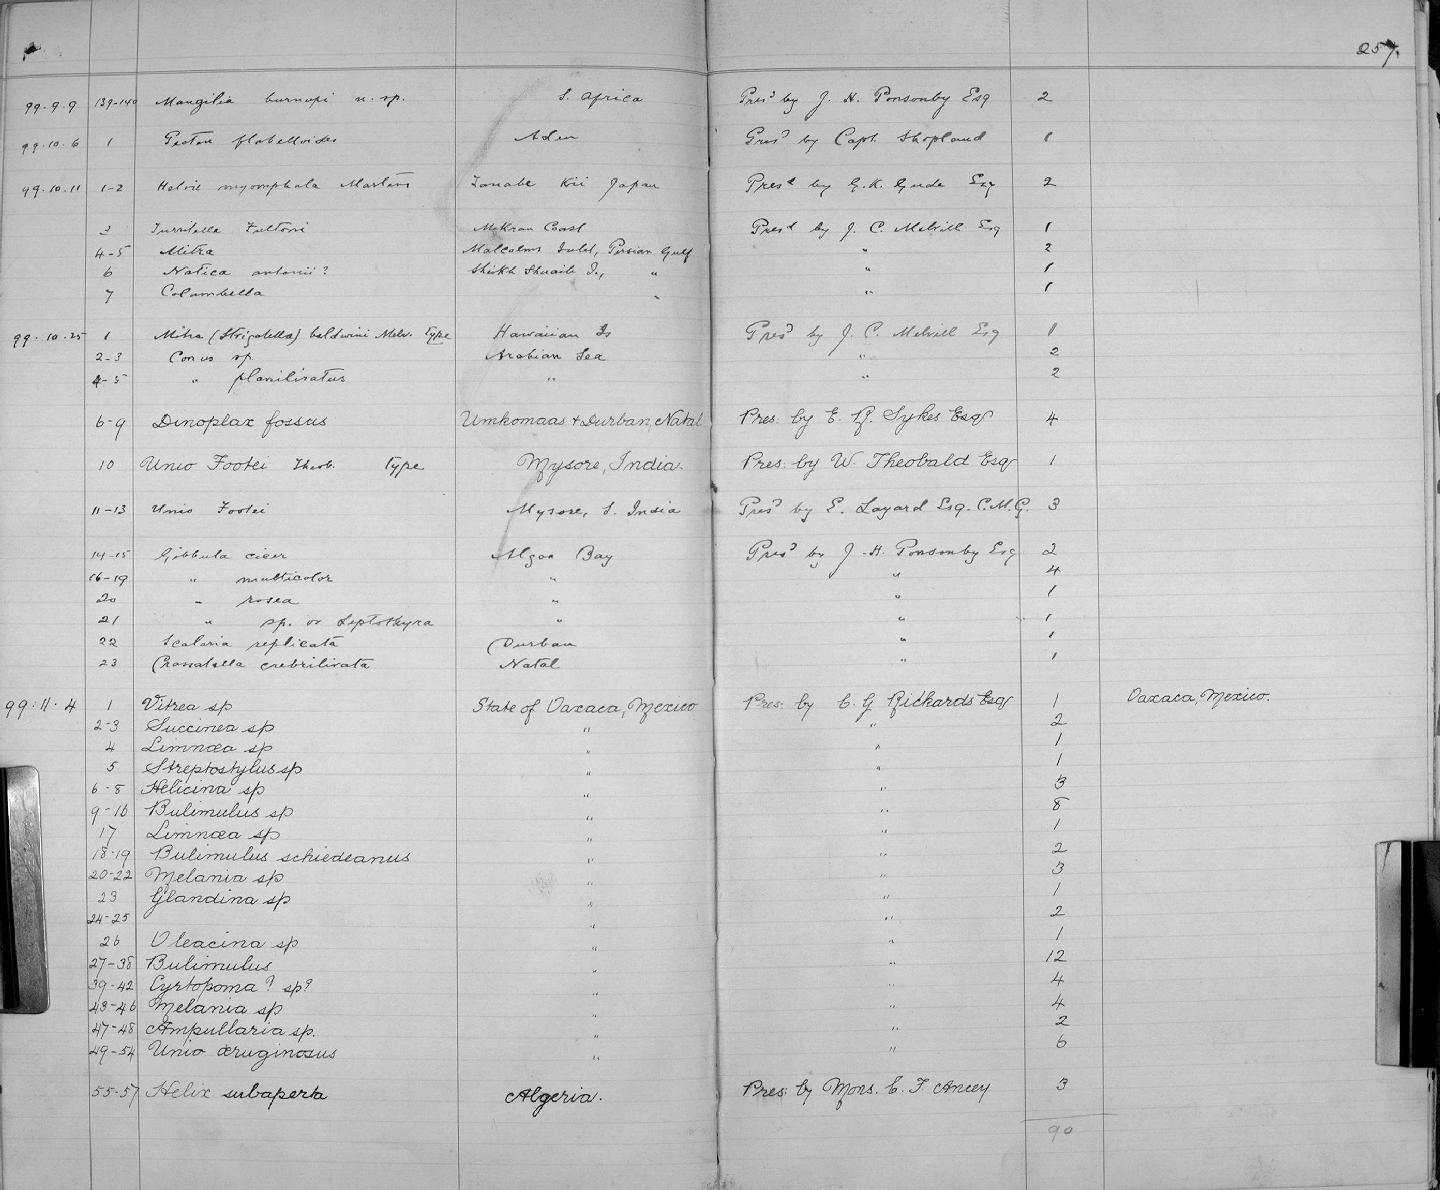 257.
99.9.9 139-140 Mangilia burnupi n. sp. S. Africa Pres^d by J. H. Ponsonby Esq 2
99.10.6 1 Pecten flabelloides Aden Pres^d by Capt. Shopland 1
99.10.11 1-2 Helix myomphala Martens Tanabe Kii Japan Pres^d by G. K. Gude Esq 2
3 Turritella Fultoni Mekran Coast Pres^d by J. C. Melvill Esq 1
4-5 Mitra Malcolms Inlet, Persian Gulf " 2
6 Natica antonii? Sheikh Shuaib I., " " 1
7 Columbella " " 1
99.10.25 1 Mitra (Strigatella) baldwini Melv. Type Hawaiian Is Pres^d by J. C. Melvill Esq 1
2-3 Conus sp. Arabian Sea " 2
4-5 " planiliratus " " 2
6-9 Dinoplax fossus Umkomaas & Durban, Natal Pres. by E. R. Sykes Esq 4
10 Unio Footei Theob. Type Mysore, India. Pres. by W. Theobald Esq 1
11-13 Unio Footei Mysore, S. India Pres^d by E. Layard Esq. C.M.G. 3
14-15 Gibbula cicer Algoa Bay Pres^d by J. H. Ponsonby Esq 2
16-19 " multicolor " " 4
20 " rosea " " 1
21 " sp. or Leptothyra " " 1
22 Scalaria replicata Durban " 1
23 Crassatella crebrilirata Natal " 1
99.11.4 1 Vitrea sp State of Oaxaca, Mexico Pres. by C. G. Rickards Esq 1 Oaxaca, Mexico.
2-3 Succinea sp " " 2
4 Limnæa sp " " 1
5 Streptostylus sp " " 1
6-8 Helicina sp " " 3
9-16 Bulimulus sp " " 8
17 Limnæa sp " " 1
18-19 Bulimulus schiedeanus " " 2
20-22 Melania sp " " 3
23 Glandina sp " " 1
24-25 " " 2
26 Oleacina sp " " 1
27-38 Bulimulus " " 12
39-42 Cyrtopoma? sp? " " 4
43-46 Melania sp " " 4
47-48 Ampullaria sp. " " 2
49-54 Unio æruginosus " " 6
55-57 Helix subaperta Algeria. Pres. by Mons. C. F. Ancey 3
90